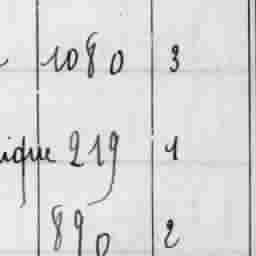 1080 3
ique 219 1
890 2